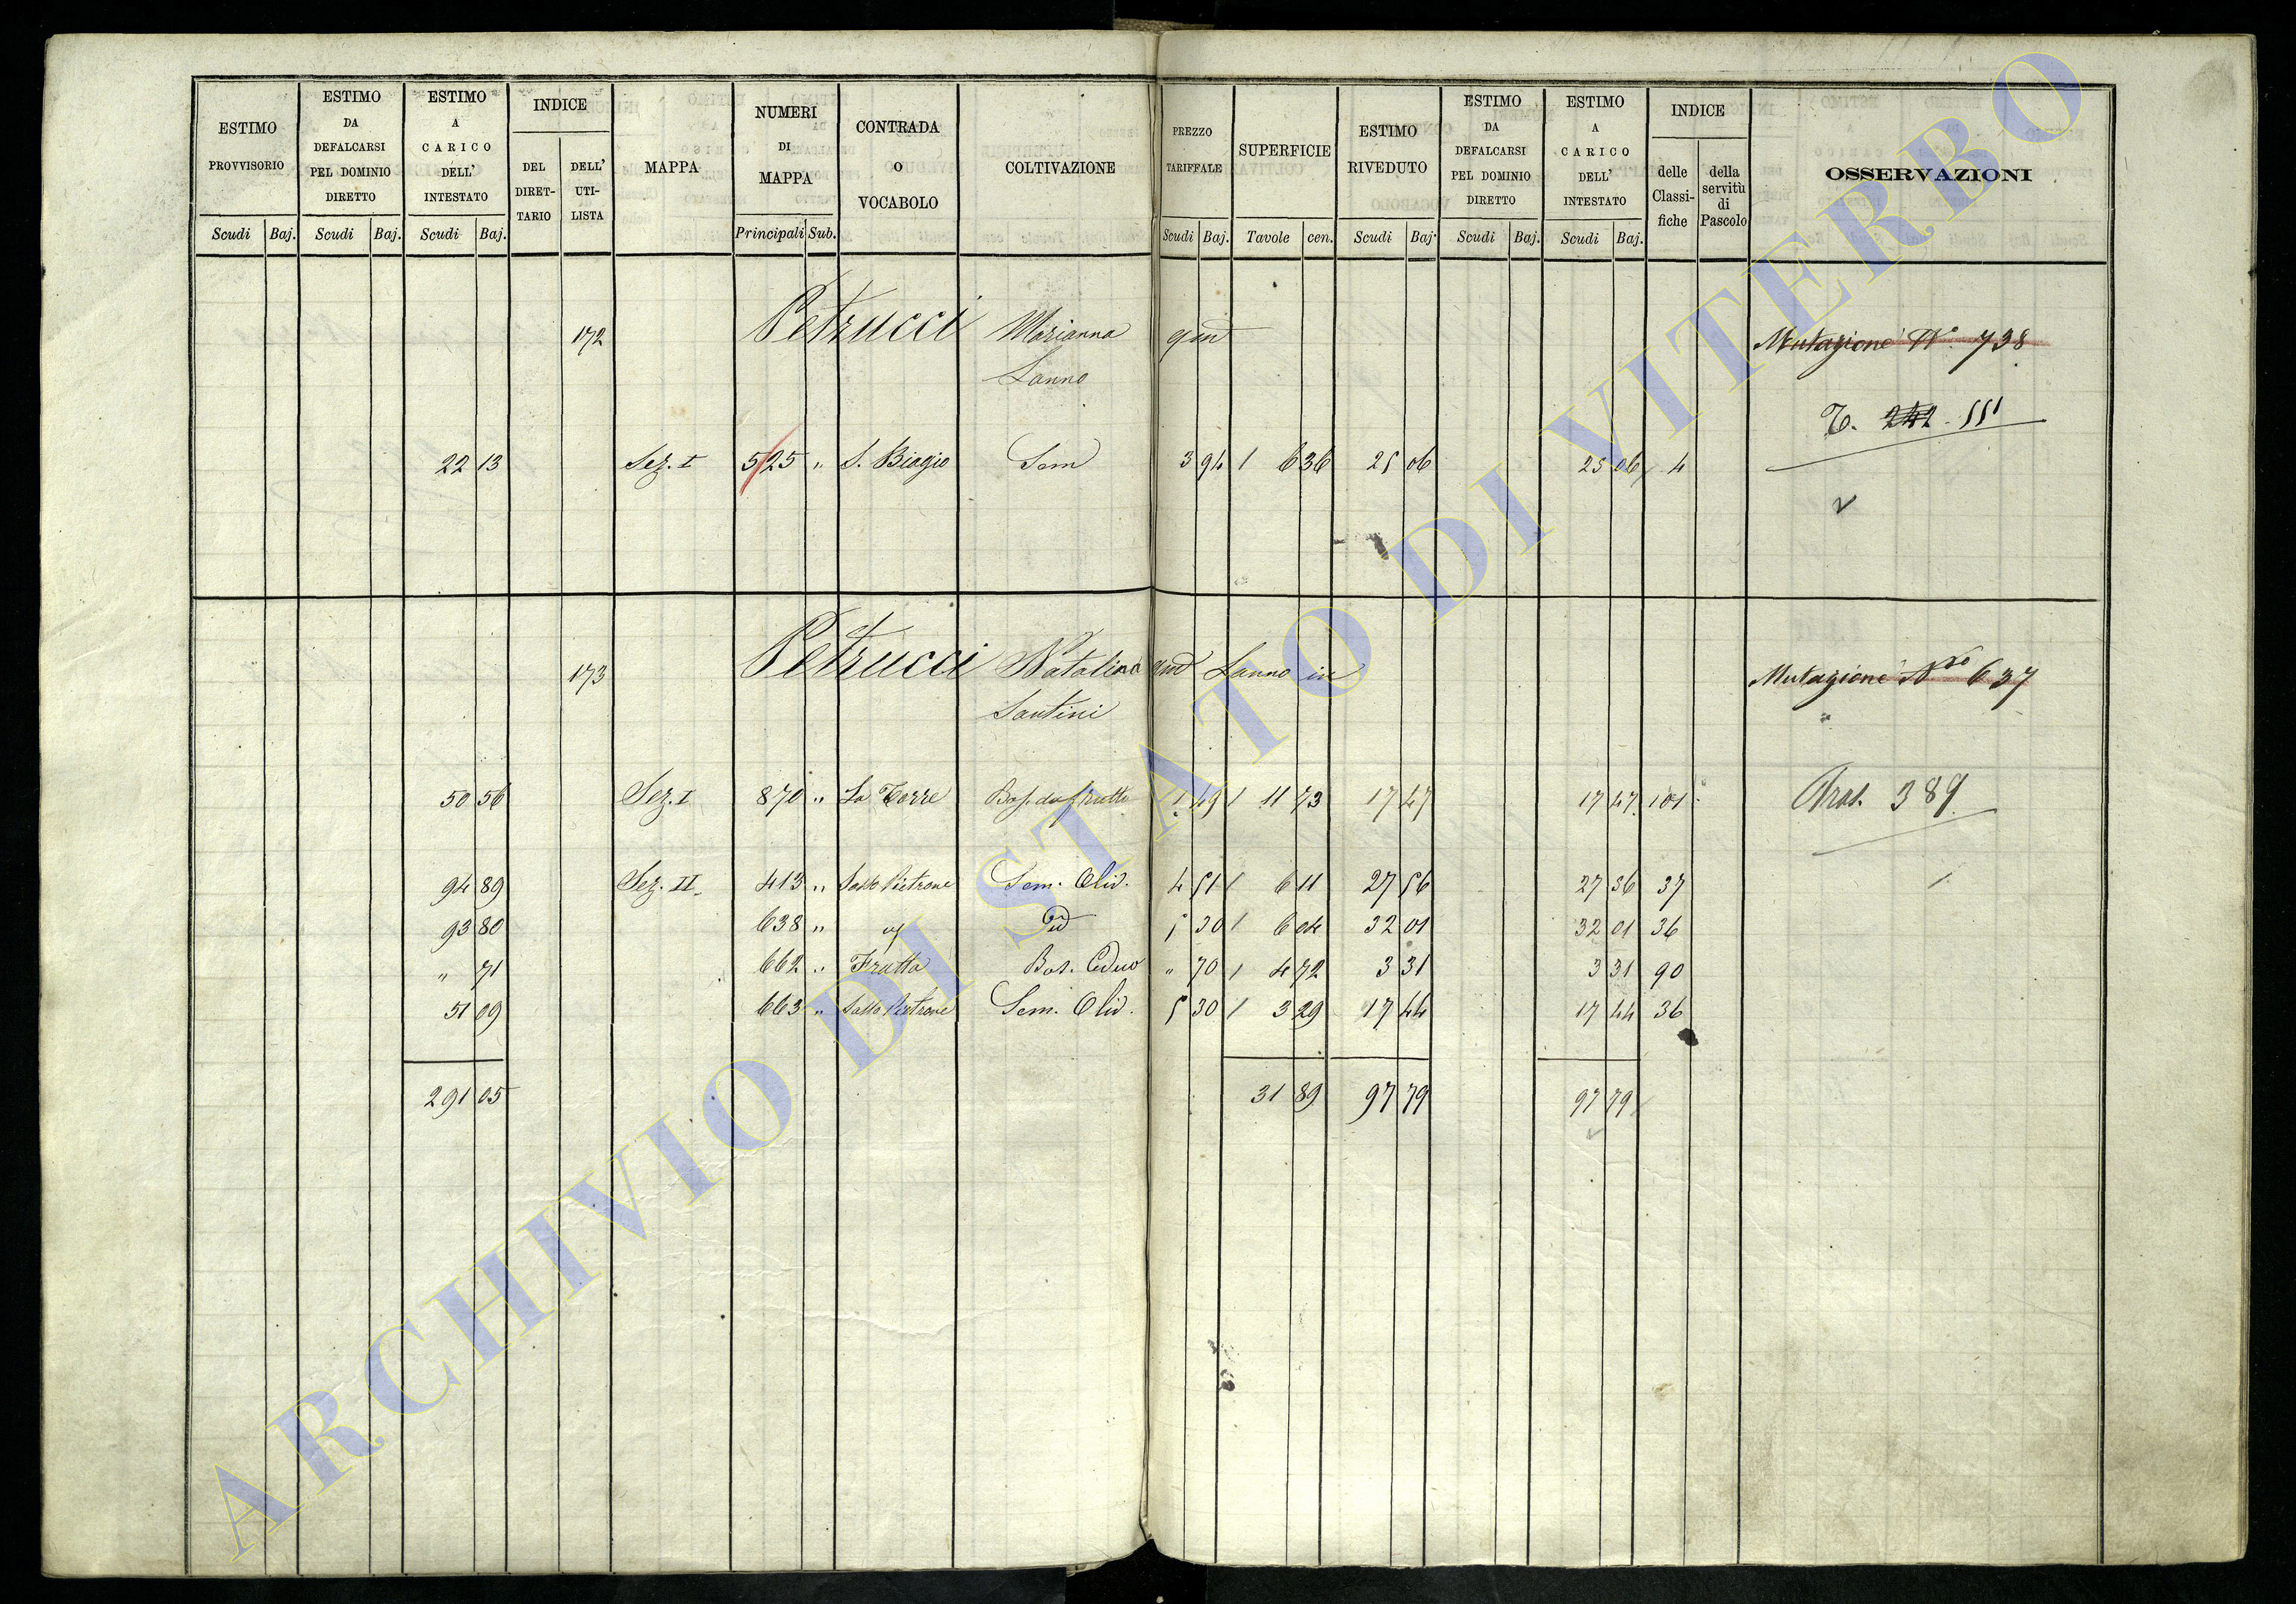 ESTIMO PROVVISORIO | ESTIMO DA DEFALCARSI PEL DOMINIO DIRETTO | ESTIMO A CARICO DELL' INTESTATO | INDICE | MAPPA | NUMERI DI MAPPA | CONTRADA O VOCABOLO | COLTIVAZIONE | PREZZO TARIFFALE | SUPERFICIE | ESTIMO RIVEDUTO | ESTIMO DA DEFALCARSI PEL DOMINIO DIRETTO | ESTIMO A CARICO DELL' INTESTATO | INDICE | OSSERVAZIONI
DEL DIRET-TARIO | DELL' UTI-LISTA | delle Classi-fiche | della servitù di Pascolo
Scudi Baj. | Scudi Baj. | Scudi Baj. | Principali Sub. | Scudi Baj. | Tavole cen. | Scudi Baj. | Scudi Baj. | Scudi Baj.
172 Petrucci Marianna qm Mutazione N.° 738
Lanno
T. 242. 551
22 13 Sez. I 525 " S. Biagio Sem 3 94 / 6 36 25 06 25 06 4
173 Petrucci Natalina qm Lanno in Mutazione Nro 637
Santini
50 56 Sez. I 870 " La Torre Bos. da frutto 1 49 / 11 73 17 47 17 47 101 Tras. 389
94 89 Sez. II 413 " Sasso Pietrone Sem. Oliv. 4 51 / 6 11 27 56 27 56 37
93 80 638 " id 5 30 / 6 04 32 01 32 01 36
" 71 662 " Fratta Bos. Ceduo " 70 / 4 72 3 31 3 31 90
51 09 663 " Sasso Pietrone Sem. Oliv. 5 30 / 3 29 17 44 17 44 36
291 05 31 89 97 79 97 79
ARCHIVIO DI STATO DI VITERBO